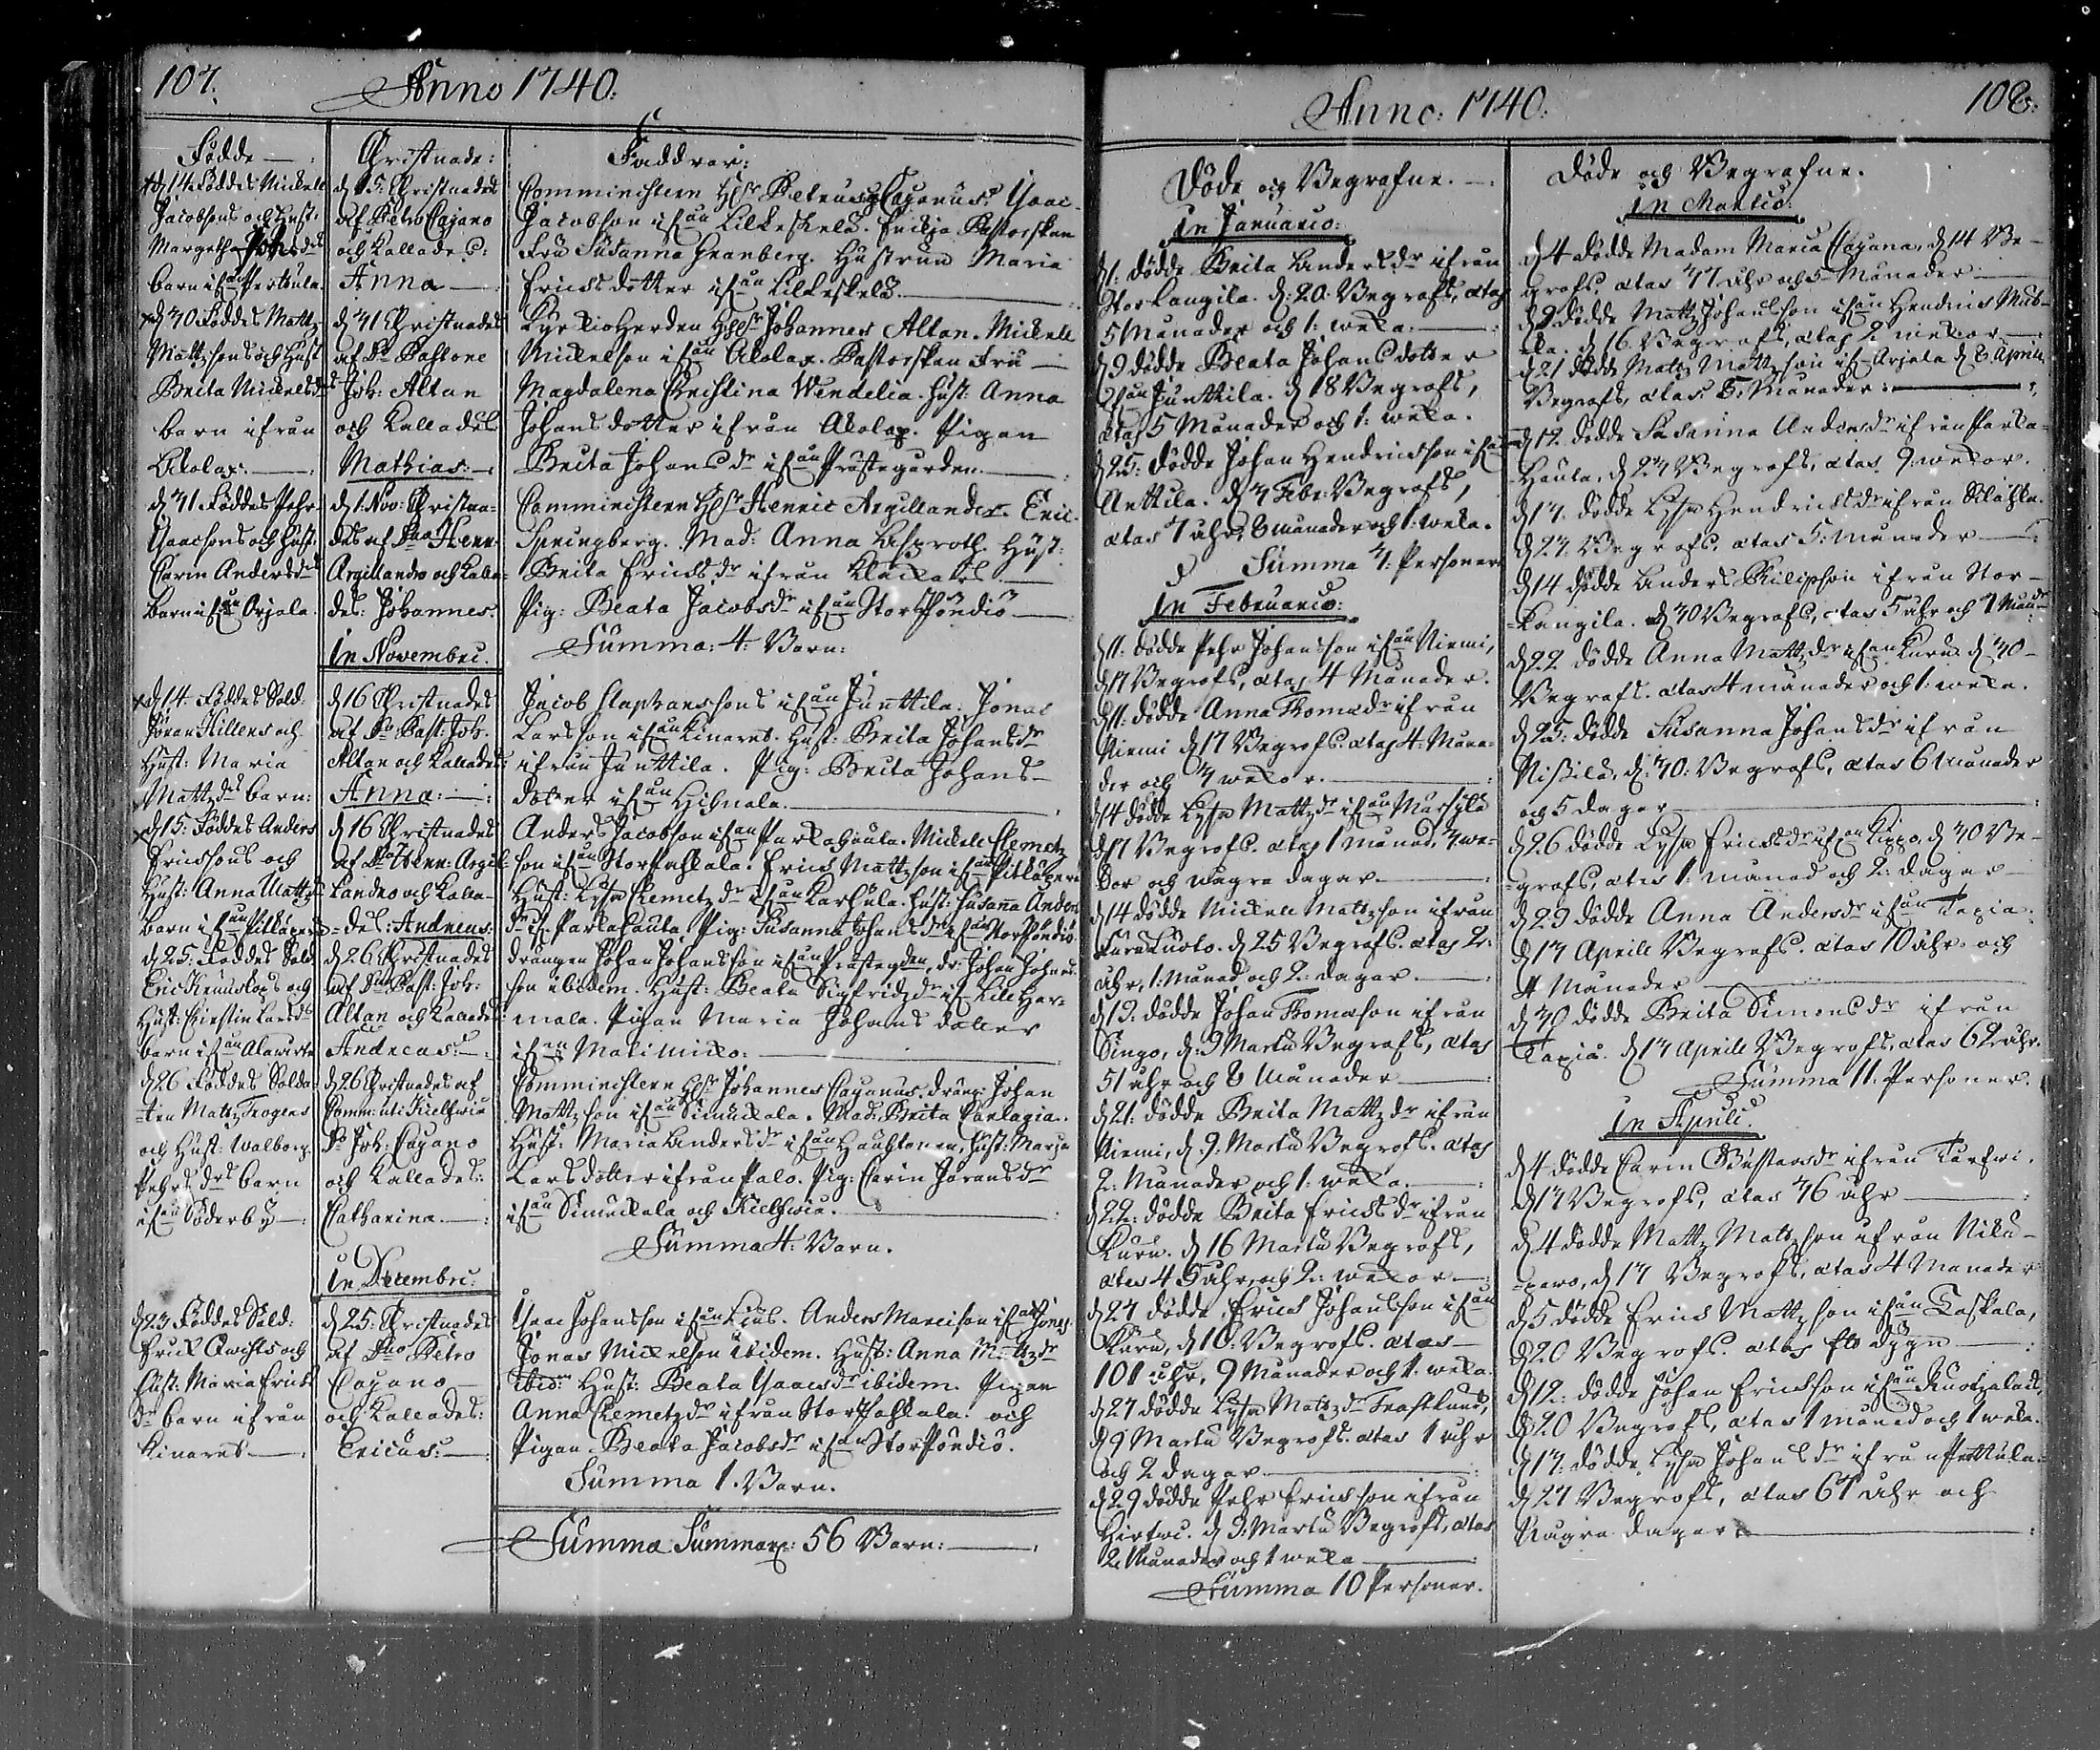 107.
Anno 1740.
Födde
d. 14. Föddes Mickell
Jacobsons och Hust:
Margeth
barn ifrån Perttula
d 30 Föddes Mattz
Mattzsons och Hust
Brita Mickelsdr
barn ifrån
Akolax.
d 31 Föddes Pehr
Ysaacsons och Hust:
Carin Andersdrs
barn ifrån Orjala.
d 14. Föddes Sold.
Jöran Killens och
Hust: Maria
Mattzdrs barn:
d 15: Föddes Anders
Ericssons och
Hust: Anna Mattzdrs
barn ifrån
d 25: Föddes Sold
Eric och
Hust: Kirstin Larsdrs
barn ifrån
d 26 Föddes Solda-
ten Mattz Trogens
och Hust: Walborg
Pehrsdrs barn
ifrån Söderby
d 23 Föddes Sold:
Erick Qwists och
Hust: Maria Ericks
dr barn ifrån
Kinaret
Christnade:
d 15: Christnades
af Petro Cajano
och kallades:
Anna
d 31 Christnades
af Dno Pastore
Joh: Altan
och kallades
Mathias:
d 1. Nov: Christna-
des af Dno Henr.
Argillandro och kalla-
des: Johannes.
in Novembri.
d 16 Christnades
af Dno Past: Joh.
Altan och kallades:
Anna:
d 16 Christnades
af Dno Henr: Argil-
landro och kalla-
des: Andreas:
d 26 Christnades
af Dno Past: Joh:
Altan och kallades:
Andreas:
d 26 Christnades af
Comm: uti
Dno Joh: Cajano
och kallades:
Catharina.
in Decembri:
d 25: Christnades
af Dno Petro
Cajano
och kallades:
Ericus:
Faddrar:
Comministern Petrus Cajanus. Ysaac
Jacobson ifrån Lillkeskelä. Pastorskan
Fru Susanna Granberg. Hustrun Maria
Ericsdotter ifrån Lillkeskelä.
Kyrkioherden Johannes Altan. Mickell
Mickelson ifrån Akolax. Pastorskan Fru
Magdalena Christina Wendelia. Hust: Anna
Johansdotter ifrån Akolax. Pigan
Brita Johansdr ifrån Prästegården.
Comministern Henric Argillander. Eric
Springberg. Mad: Anna Hust:
Brita Ericksdr ifrån
Pig: Beata Jacobsdr ifrån Storpöndiö
Summa: 4: Barn:
Jacob Staphanssons ifrån Junttila. Jonas
Larsson ifrån Kinaret. Hust: Brita Johansdr
ifrån Junttila. Pig: Brita Johans-
dotter ifrån
Anders Jacobson ifrån Parlahaula. Mickell Clemetz
son ifrån Storpahkala. Erick Mattzson ifrån
Hust: Lysa Clemetzdr ifrån Karhula. Hust: Susanna Anders
dr ifrån Parlahaula. Pig: Susanna Johansdr ifrån Storpöndiö
Drängen Johan Johansson ifrån Prästegården, dr: Johan Johns
son ibidem. Hust: Beata Sigfridzdr
mala. Pigan Maria Johans dotter
ifrån
Comministern Johannes Cajanus. Dräng: Johan
Mattzson ifrån Simuckala. Mad: Brita Carlagia.
Hust: Maria Andersdr ifrån Hauhtonen, Hust: Marja
Larsdotter ifrån Palo. Pig: Carin Jöransdr
ifrån Simuckala och
Summa 4: Barn.
Ysaac Johansson ifrån Anders Marcison ifrån
Jonas Mickelson ibidem. Hust: Anna Mattzdr
ibid: Hust: Beata Ysaacsdr ibidem. Pigan
Anna Clemetzdr ifrån Storpahkala. och
Pigan Beata Jacobsdr ifrån Storpöndiö.
Summa 1. Barn.
Summa Summarum: 56 Barn:
Anno: 1740.
108.
Döde och Begrafne.
in Januario:
d 1: dödde Brita Andersdr ifrån
Storkangila. d. 20. Begrofs, ætas
5 Månader och 1: weka.
d 9 dödde Beata Johansdotter
ifrån Junttila. d 18 Begrofs,
ætas 5 Månader och 1: weka.
d 25: dödde Johan Hendrickson ifrån
Anttila. d 3 Febr: Begrofs,
ætas 7 åhr, 8 månader och 1. weka.
Summa 3: Personer
in Februario:
d 11: dödde Pehr Johansson ifrån Niemi,
d 17 Begrofs, ætas 4 Månader.
d 11: dödde Anna Thomædr ifrån
Niemi d 17 Begrofs. ætas 4: Måna-
der och 3 wekor.
d 14 dödde Lysa Mattzdr ifrån
d 17 Begrofs. ætas 1 månad, 3 we-
kor och några dagar.
d 14 dödde Mickell Mattzson ifrån
d 25 Begrofs. ætas 2:
åhr, 1: Månad och 2: dagar.
d 19: dödde Johan Thomæson ifrån
Singo, d: 9 Martii Begrofs, ætas
51 åhr och 8 Månader
d 21: dödde Brita Mattzdr ifrån
Niemi, d 9. Martii Begrofs. ætas
2: Månader och 1: weka.
d 22: dödde Brita Ericksdr ifrån
Kuru. d 16 Martii Begrofs,
ætas 45 åhr, och 2: wekor
d 27 dödde Erick Johansson ifrån
Kuru, d 16: Begrofs. ætas
101 åhr, 9 Månader och 1. weka.
d 27 dödde Lysa Mattzdr
d 9 Martii Begrofs. ætas 1 åhr
och 2 dagar
d 29 dödde Pehr Ericsson ifrån
d 9: Martii Begrofs, ætas
2 Månader och 1 weka
Summa 10 Personer.
Döde och Begrafne.
in Martio:
d 4 dödde Madam Maria Cajana, d 14 Be-
grofs, ætas 77 åhr och 5 Månader
d 9 dödde Mattz Johansson ifrån
d 16 Begrofs, ætas 2 wekor
d 21 dödde Mattz Mattzson ifrån Orjala d 6 Aprilis
Begrofs, ætas: 5: Månader:
d 12. dödde Susanna Andersdr ifrån Parla-
haula, d 23 Begrofs, ætas 9: wekor.
d 13. dödde Lysa Hendricksdr ifrån
d 23. Begrofs, ætas 5: Månader
d 14 dödde Anders Philipson ifrån Stor-
Kangila. d 30 Begrofs, ætas 5 åhr och 7 Månr
d 22 dödde Anna Mattzdr ifrån Kuru d 30
Begrofs. ætas 4 månader och 1: weka.
d 25: dödde Susanna Johansdr ifrån
Nissilä, d: 30: Begrofs, ætas 6 Månader
och 5 dagar
d 26 dödde Lysa Ericksdr ifrån d 30 Be-
grofs, ætas 1: månad och 2: dagar
d 29 dödde Anna Andersdr ifrån Tapia
d 13 Aprili Begrofs. ætas 10 åhr och
4 Månader
d 30 dödde Brita Simonsdr ifrån
Tapia. d 13 Aprili Begrofs, ætas 62 åhr.
Summa 11. Personer.
in Aprili.
d 4 dödde Carin Gustavsdr ifrån
d 13 Begrofs, ætas 36 åhr
d 4 dödde Mattz Mattzson ifrån
d 13 Begrofs, ætas 4 Månader
d 5 dödde Erick Mattzson ifrån Taskala,
d 20 Begrofs. ætas ett dygn
d 12: dödde Johan Ericksson ifrån
d 20 Begrofs, ætas 1 månad och 1 weka.
d 13: dödde Lysa Johansdr ifrån Perttula
d 27 Begrofs, ætas 67 åhr och
Några dagar